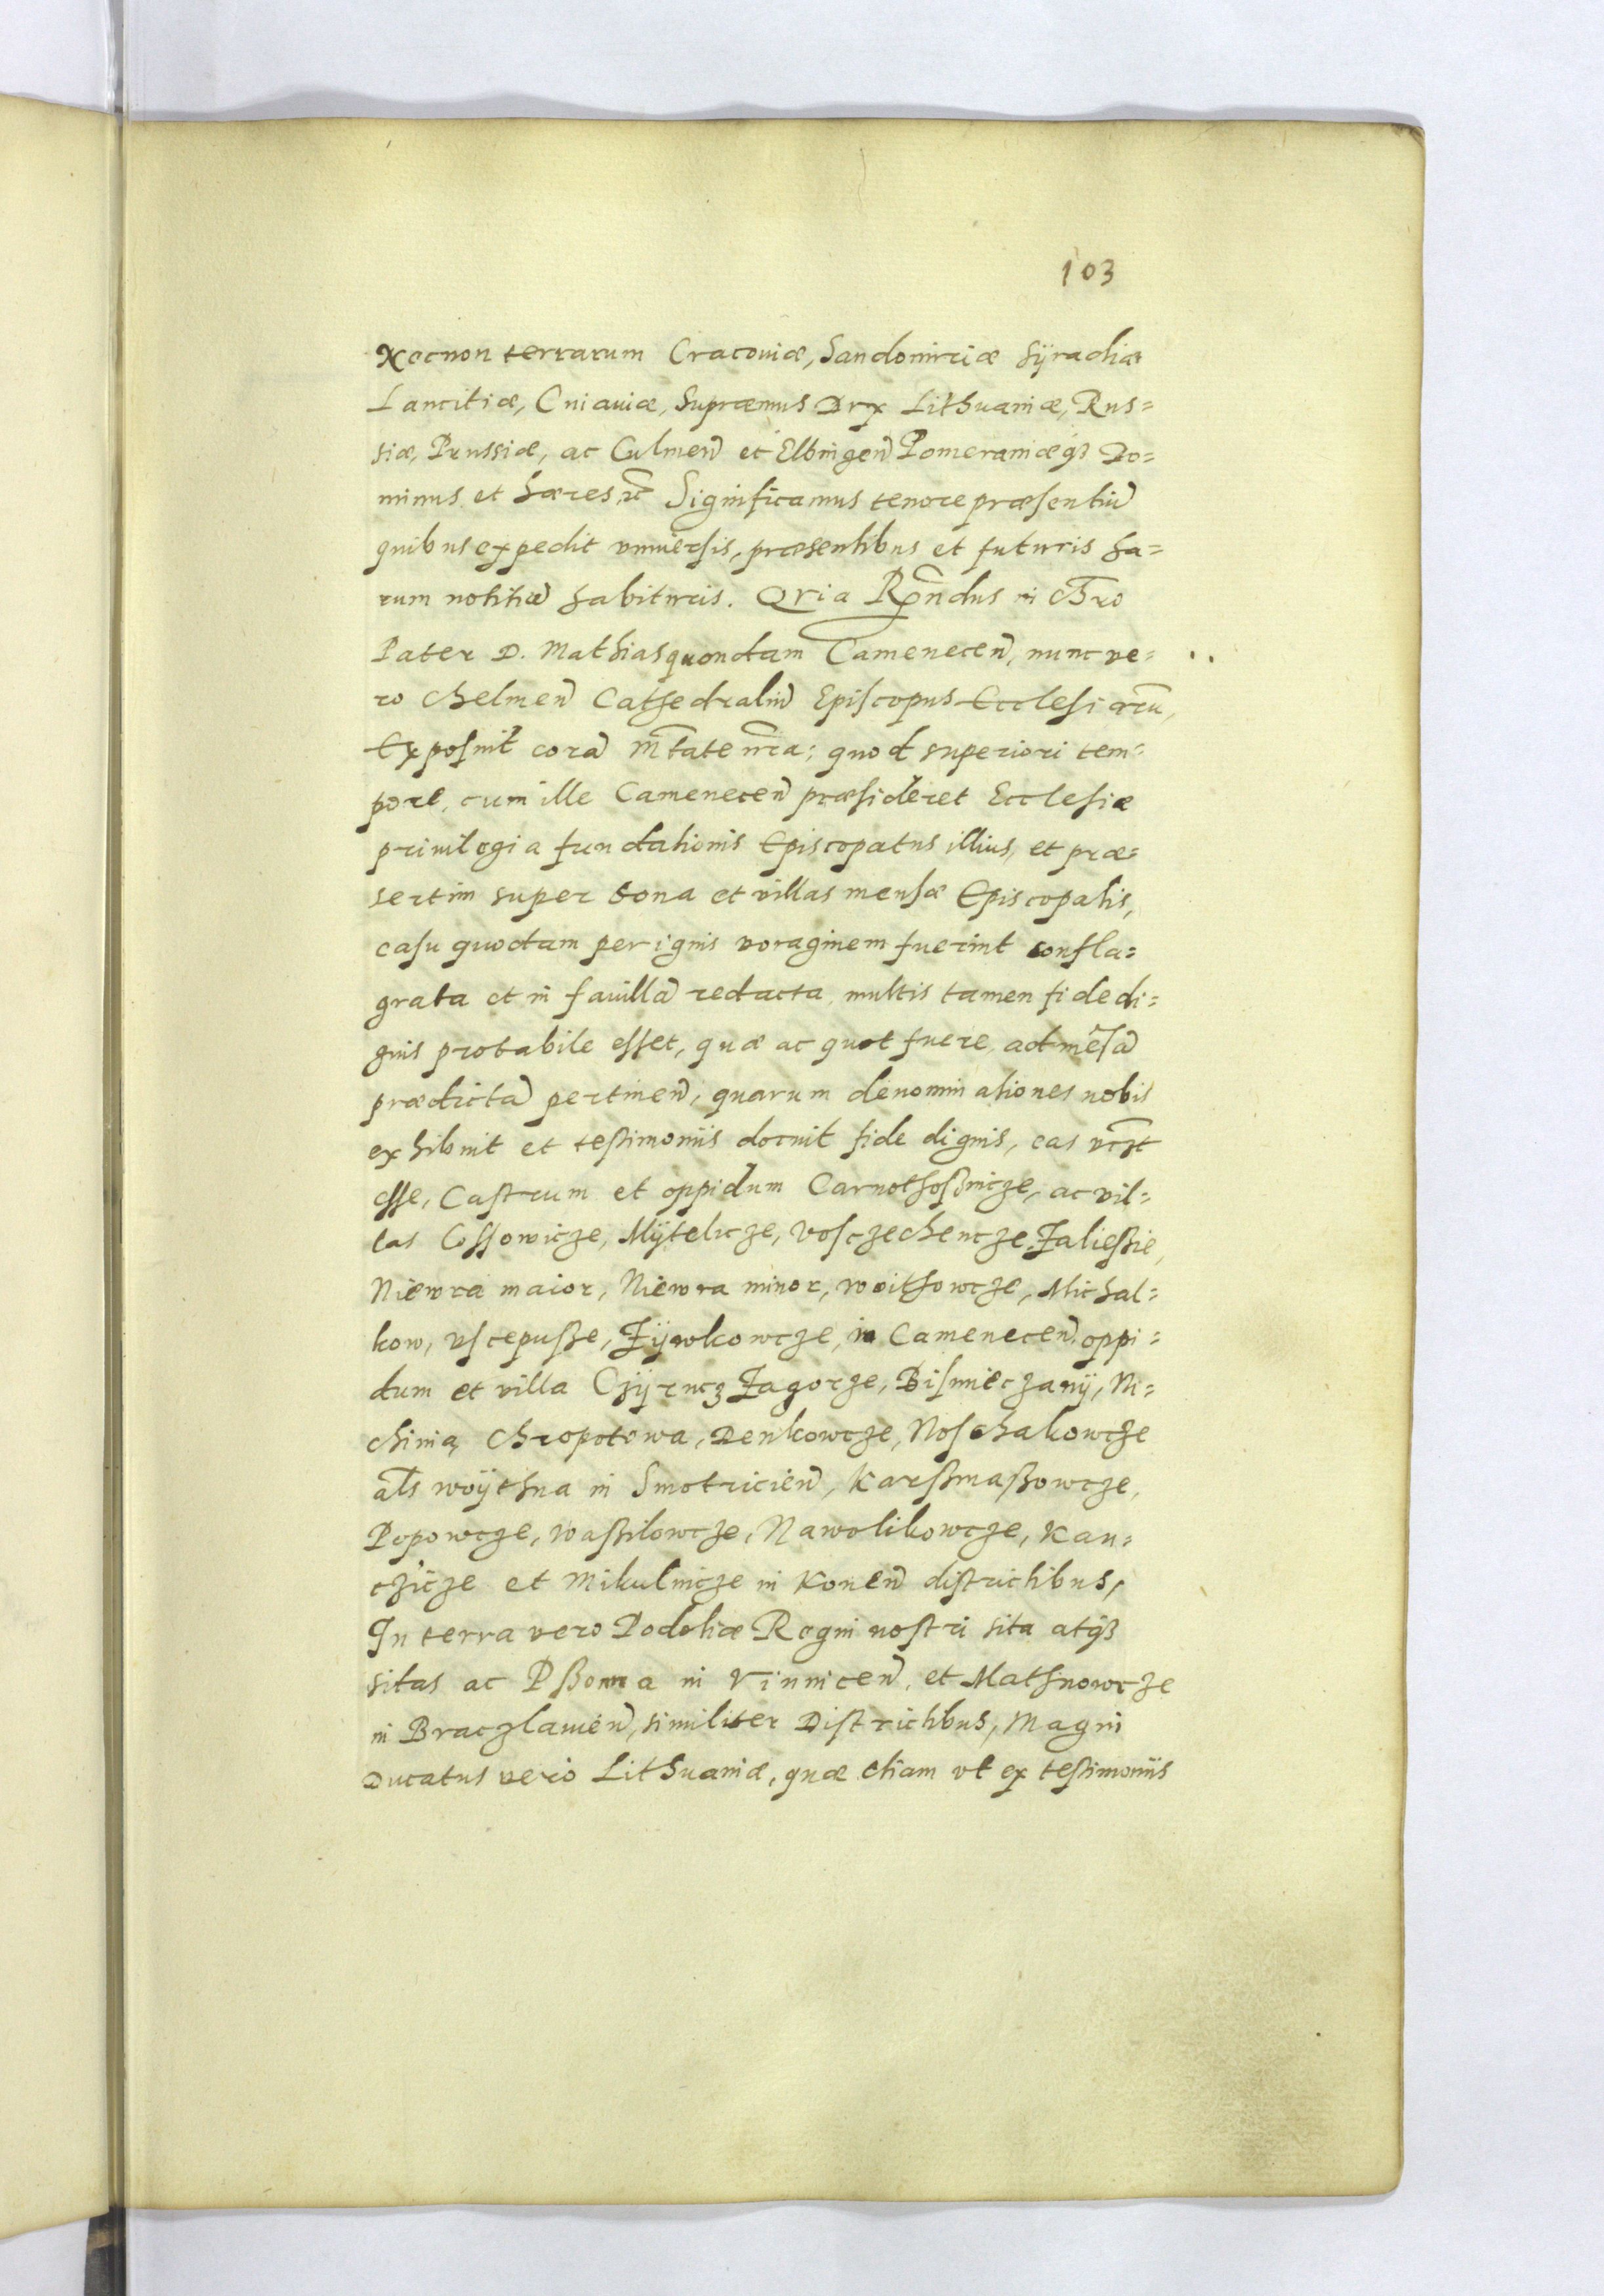 103
Necnon terrarum Cracoviæ, Sandomiriæ Sÿradiæ
Lancitiæ, Cuiaviæ, Supræmus Dux Lithuaniæ, Rus=
siæ, Prussiæ, ac Culmen̄ et Elbingen̄ Pomeraniæqȝ Do=
minus et hæres, ꝛc̄ Significamus tenore præsentiū
quibus expedit vniuersis, præsentibus et futuris ha=
rum notitiā habituris. Quia Rn̄dus in Chro
Pater D. Mathias quondam Camenecen̄, nunc ve=
ro Chelmen̄ Cathedraliū Episcopus Ecclesiarū,
Exposuit corā Mtāte nrā; quod superiori tem=
pore, cum ille Camenecen̄ præsideret Ecclesiæ
priuilegia fundationis Episcopatus illius, et præ=
sertim super bona et villas mensæ Episcopalis,
casu quodam per ignis voraginem fuerint confla=
grata et in fauillā redacta, multis tamen fide di=
gnis probabile esset, quæ ac quot fuere ad mēsā
prædictā pertinen̄, quarum denominationes nobis
exhibuit et testimoniis docuit fide dignis, eas vcȝt
esse, Castrum et oppidum Carnothoßincze, ac vil=
las Cossowicze, Mÿtelicze, Vosczechencze, Zalieβie,
Niewra maior, Niewra minor, Woithowcze, Michal=
kow, Vscepuβe, Zÿwkowcze, in Camenecen̄ oppi=
dum et villa Czÿrncz Zagorze, Bismieczanÿ, Ni=
chinia, Chropotowa, Denkowcze, Noschakowcze
als Woÿthna in Smotricien̄, Karβmaβowcze,
Popowcze, Waβilowcze, Nawolikowcze, Kan=
czicze et Mikulincze in Konen̄ districtibus,
In terra vero Podoliæ Regni nostri sita atqȝ
sitas ac Pβonra in Vinnicen̄, et Mathnowcze
in Braczlauien̄, similiter Districtibus, Magni
Ducatus vero Lithuaniæ, quæ etiam vt ex testimoniis